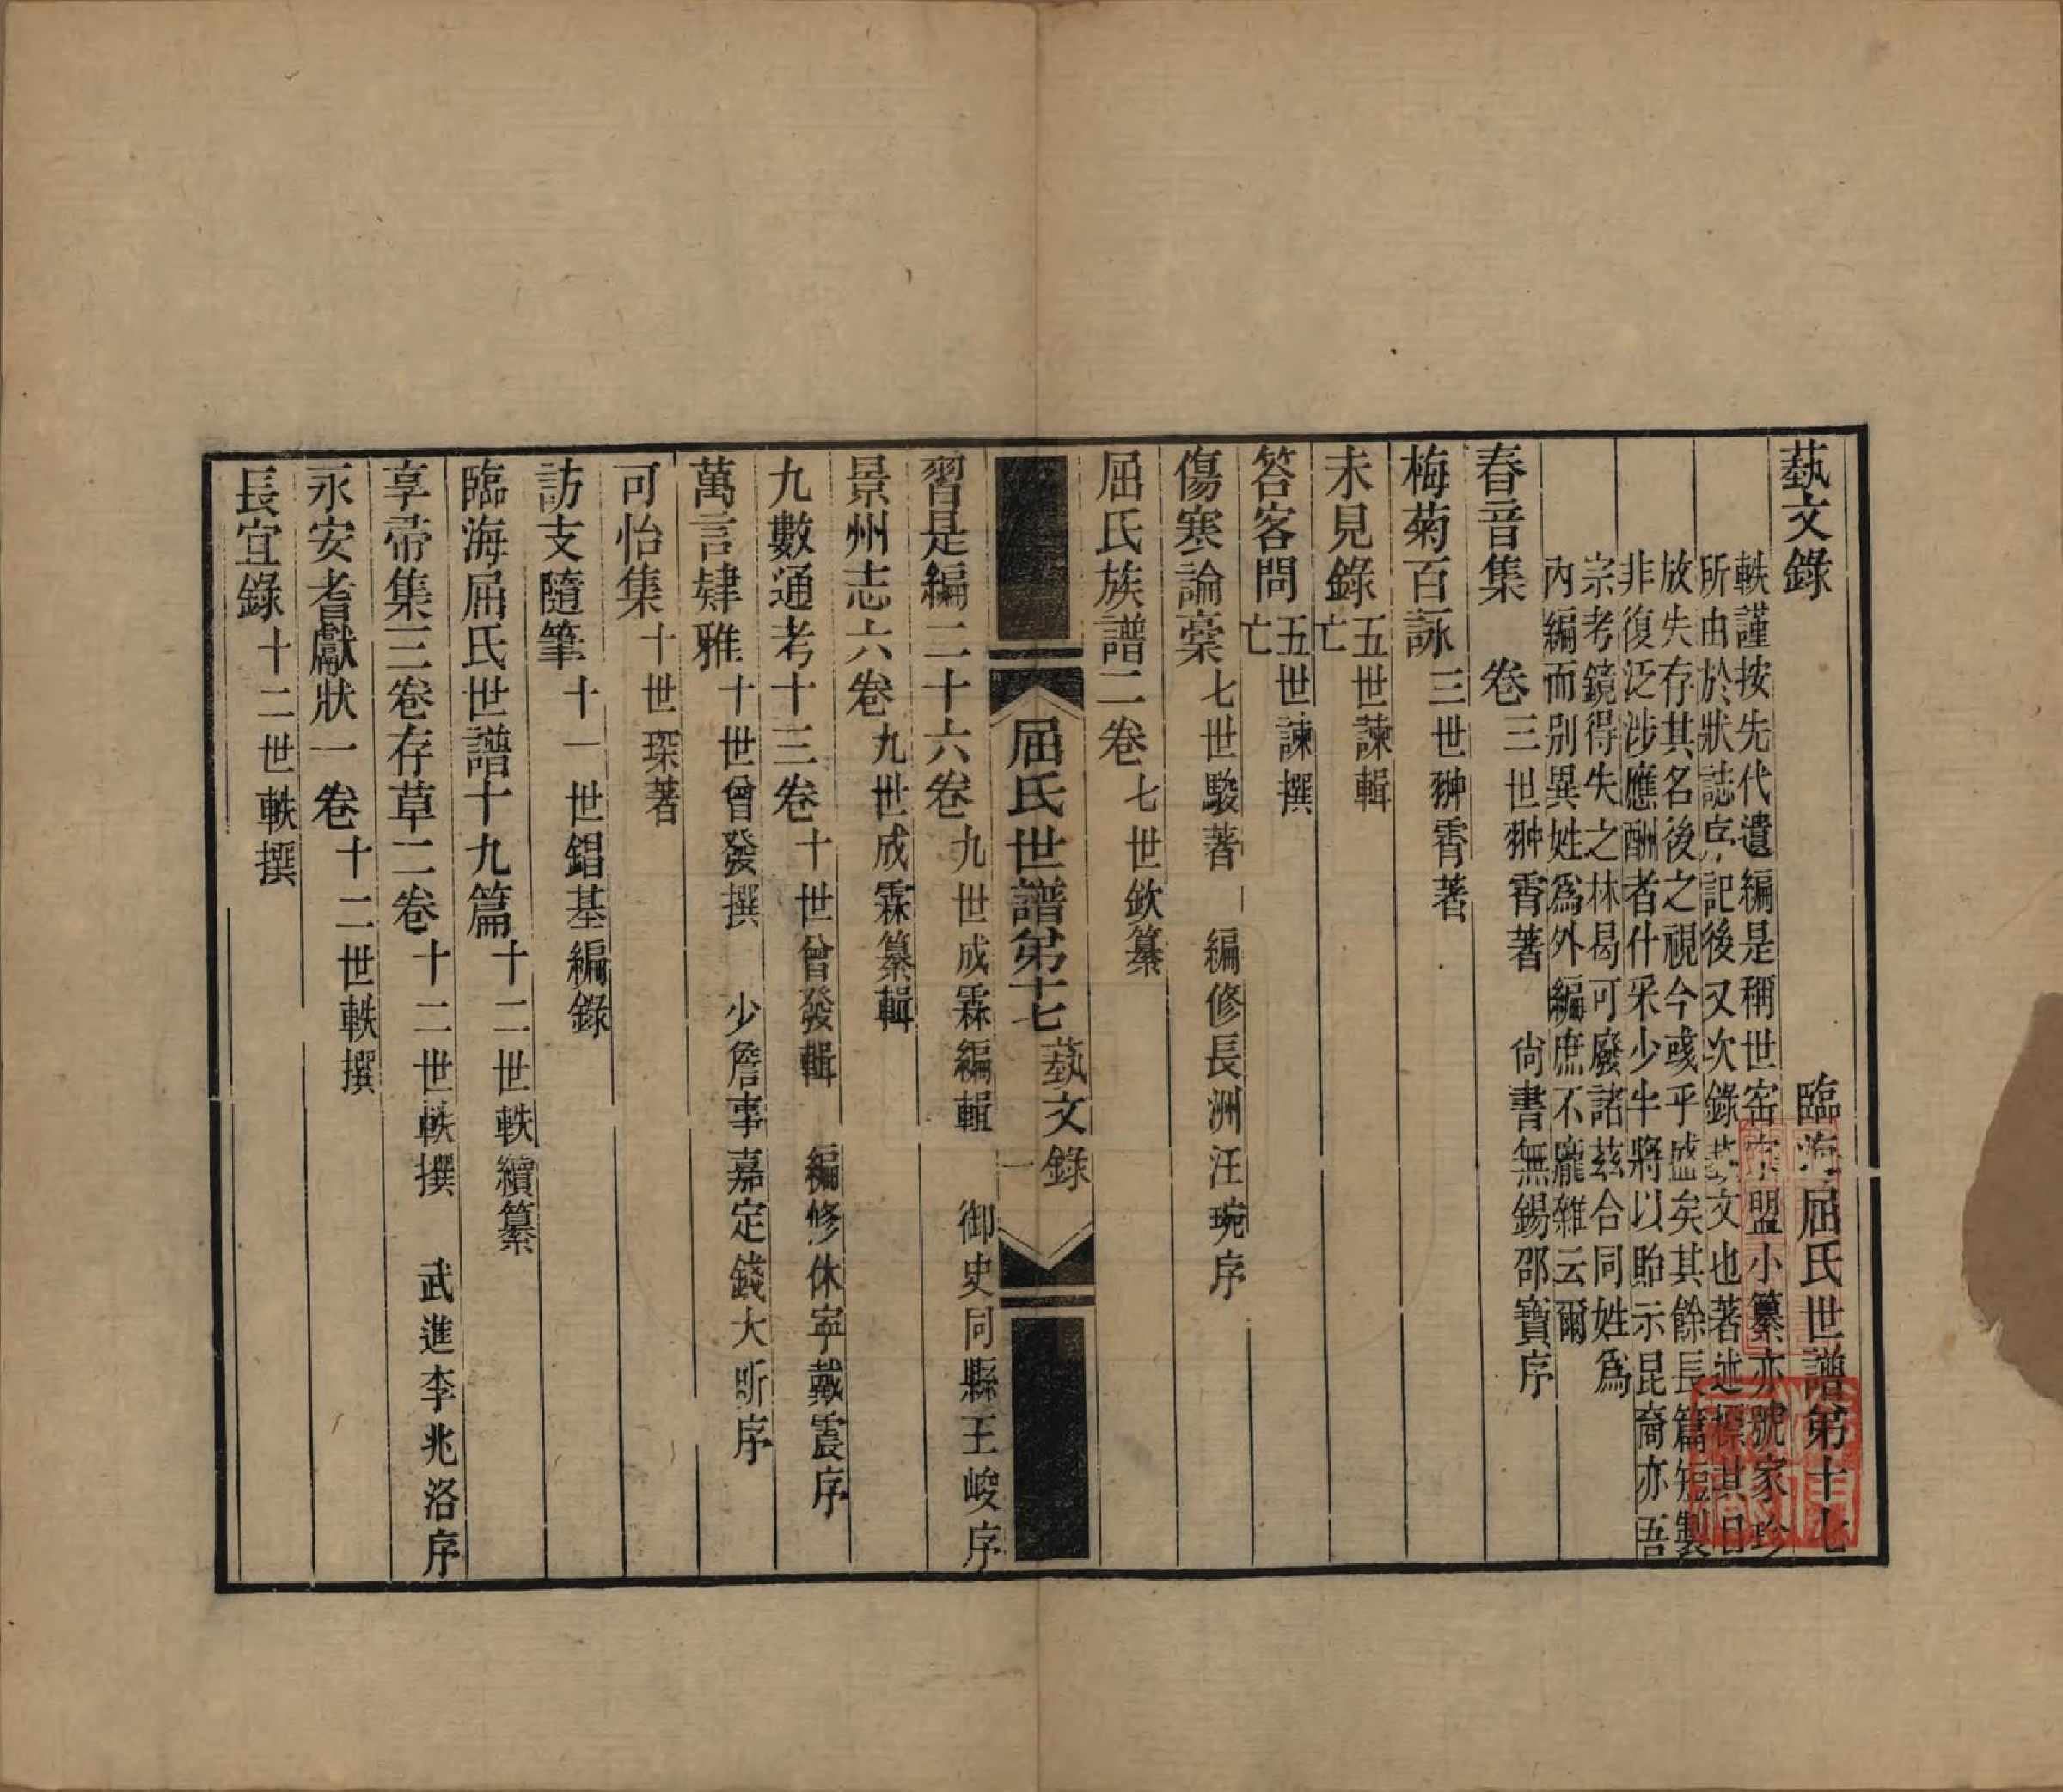 藝文錄　臨海屈氏世譜第十七
軼謹按先代遺編是稱世宙宗盟小纂亦號家珍
所由於狀誌序記後又次錄藝文也著述標其目
放失存其名後之視今彧乎盛矣其餘長篇短製
非復泛涉應酬者什采少半將以貽示昆裔亦吾
宗考鏡得失之林曷可廢諸茲合同姓爲
內編而別異姓爲外編庶不龐雜云爾
春音集　卷三世翀霄著　尙書無錫邵寶序
梅菊百詠三世翀霄著
未見錄五世諫輯
亡
答客問五世諫撰
亡
傷寒論稾七世駿著　編修長洲汪琬序
屈氏族譜二卷七世欽纂
屈氏世譜第十七　藝文錄　一
習是編二十六卷九世成霖編輯　御史同縣王峻序
景州志六卷九世成霖纂輯
九數通考十三卷十世曾發輯　編修休寧戴震序
萬言肄雅十世曾發撰　少詹事嘉定錢大昕序
可怡集十世琛著
訪支隨筆十一世錩基編錄
臨海屈氏世譜十九篇十二世軼續纂
享帚集三卷存草二卷十二世軼撰　武進李兆洛序
永安耆獻狀一卷十二世軼撰
長宜錄十二世軼撰